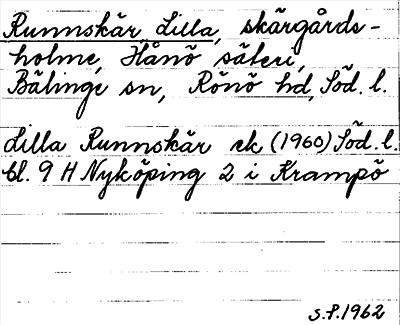 Runnskär, Lilla, skärgårds-
holme, Hånö säteri,
Bälinge sn, Rönö hd, Söd. l.
Lilla Runnskär ek (1960) Söd. l.
bl. 9 H Nyköping 2 i Krampö
S.P. 1962